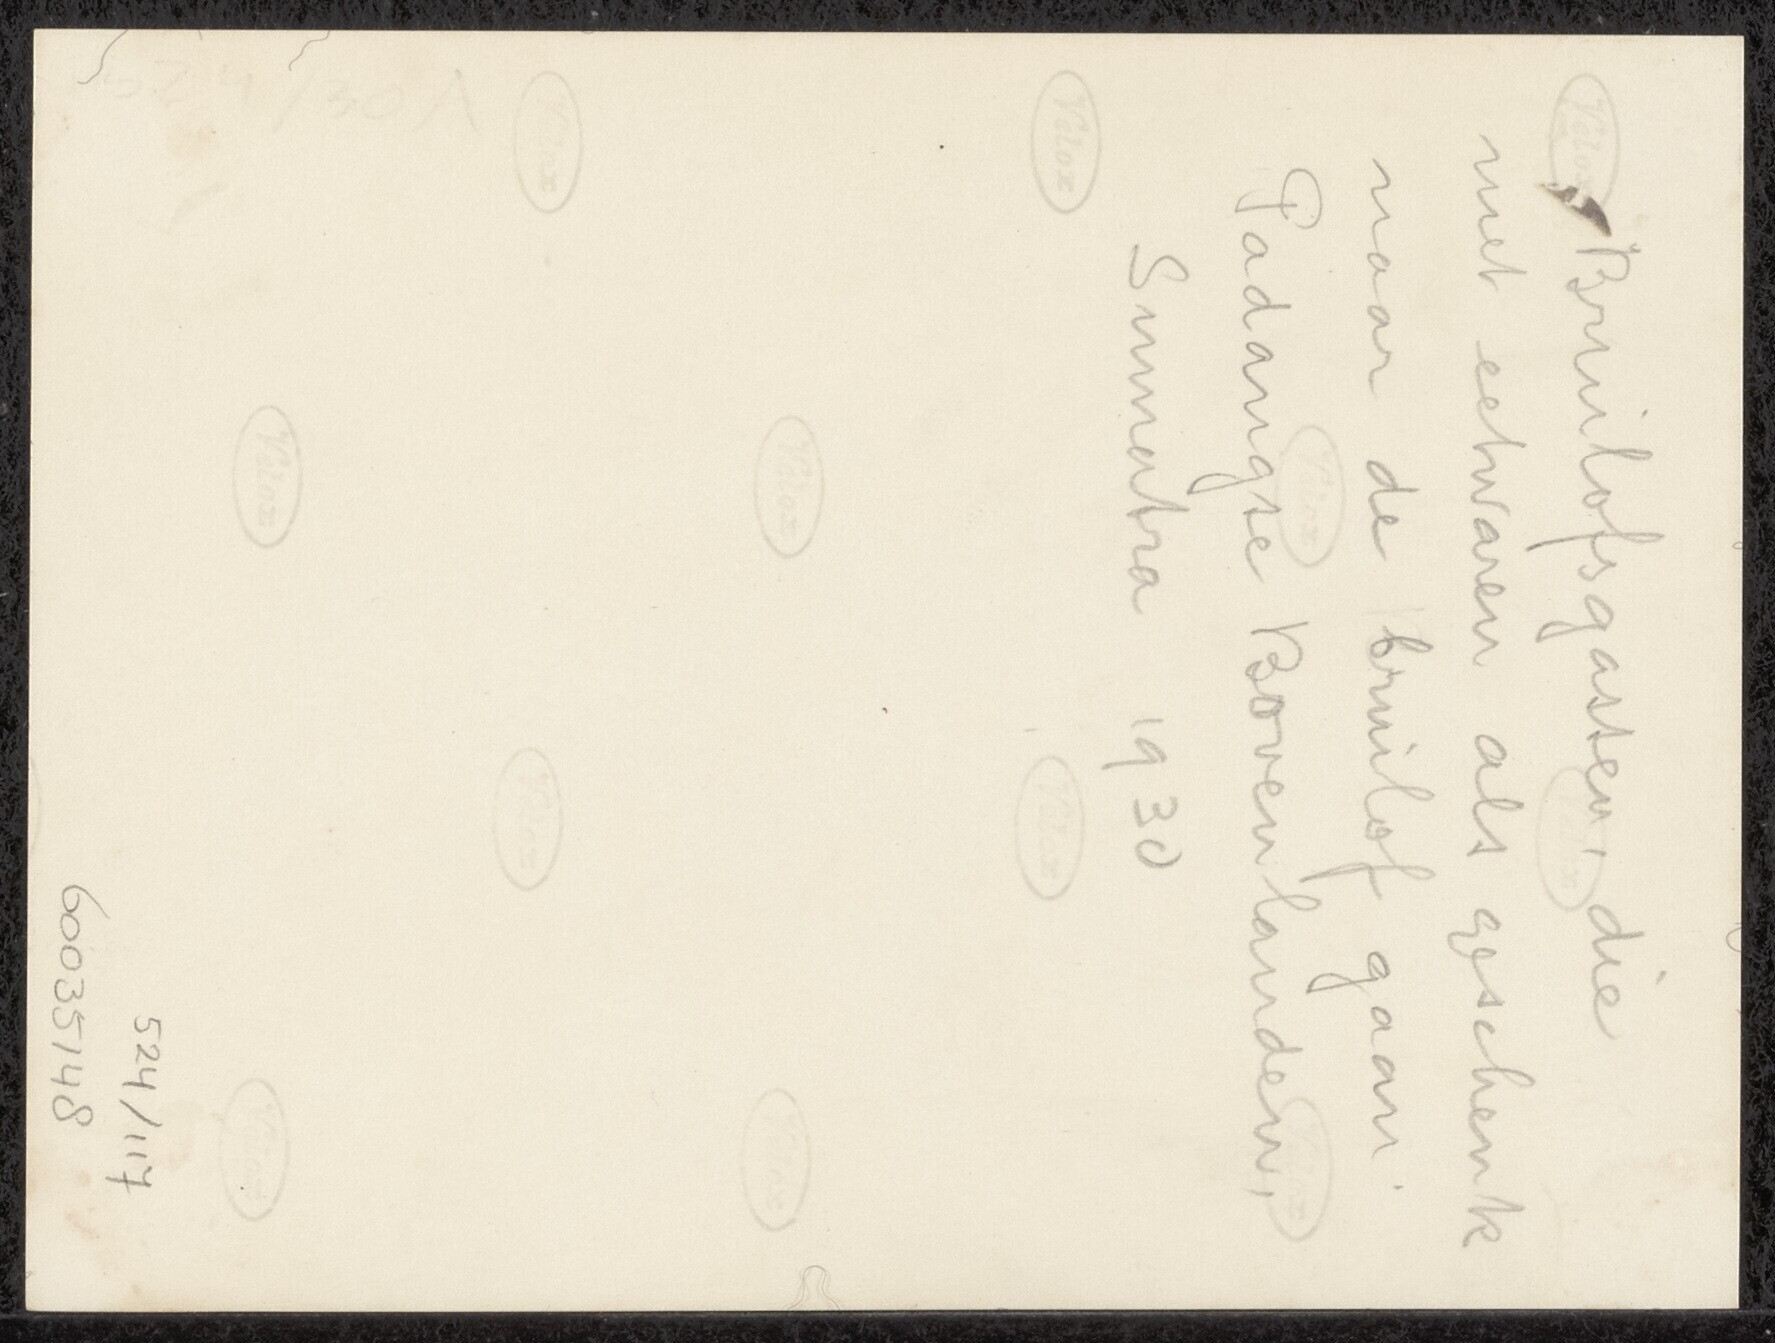 Bruilofsgasten, die
met eetwaren als geschenk
naar de bruilof gaan.
Padangse Bovenlanden,
Sumatra 1930
524/117
60035148
Velox
Velox
Velox
Velox
Velox
Velox
Velox
Velox
Velox
Velox
Velox
Velox